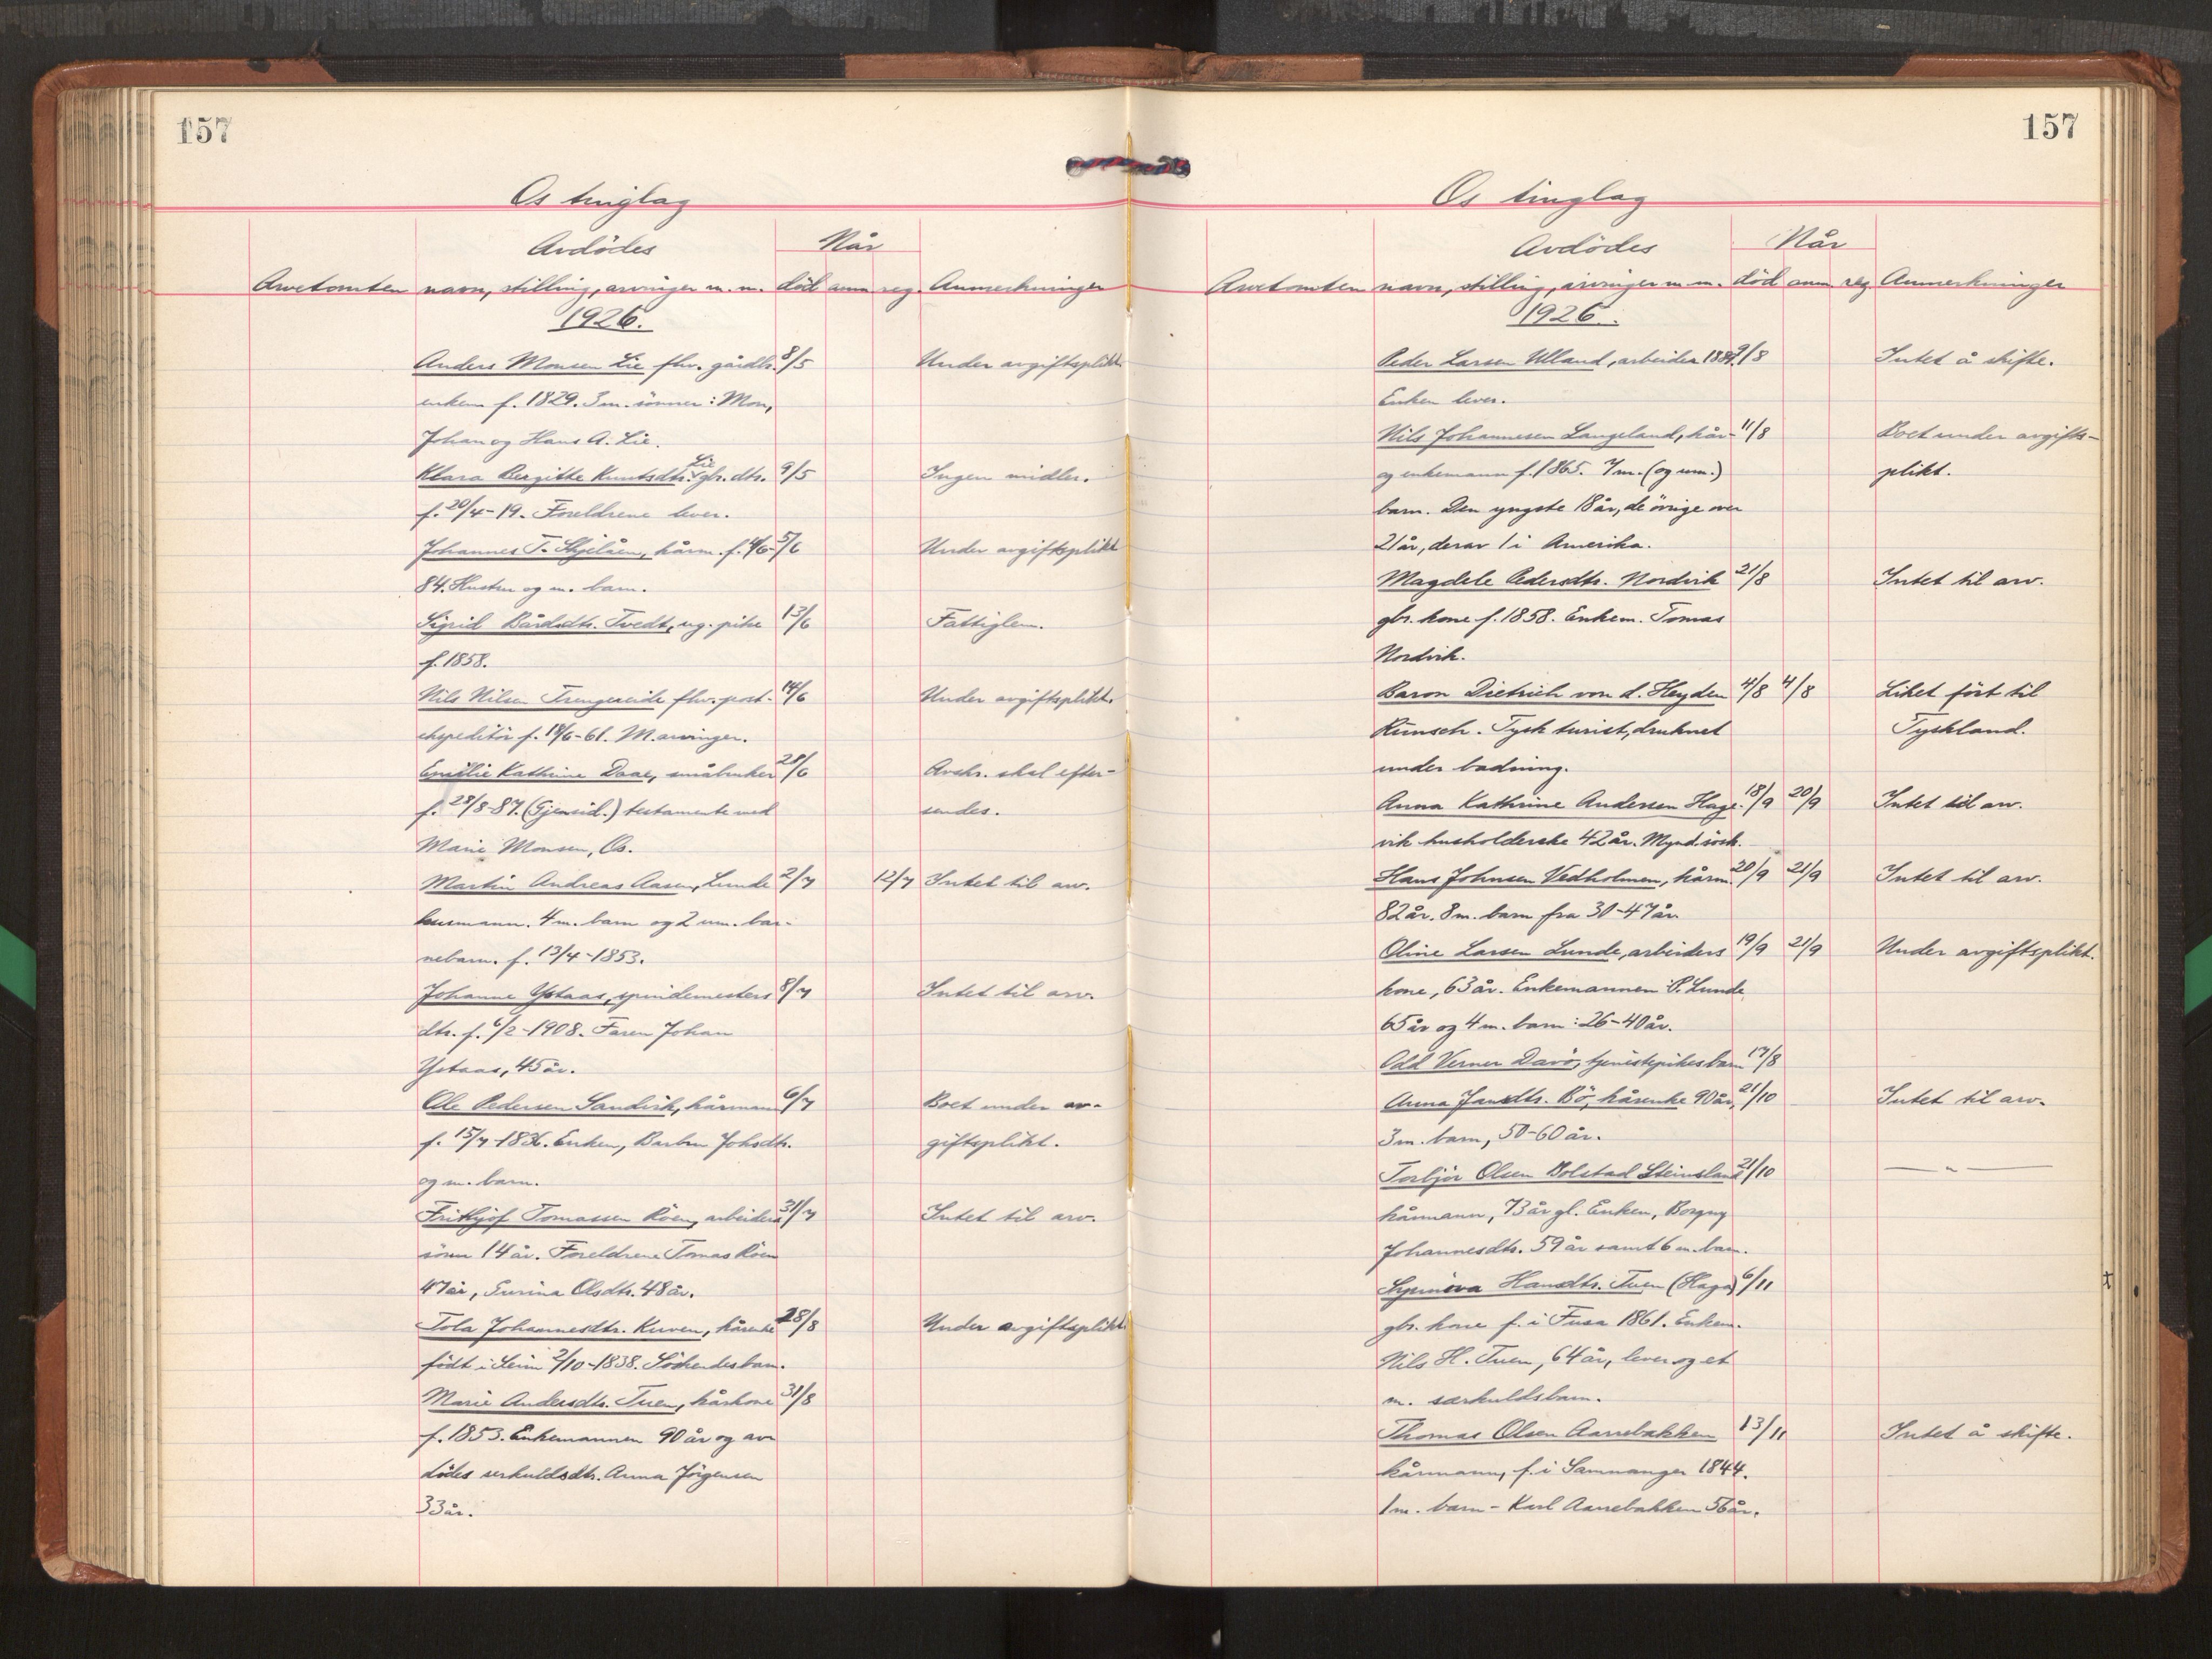 157
Os tinglag
Avdödes
Når
Arvetomten navn, stilling, arvinger m.m. död anm reg. Anmerkninger
1926.
Anders Monsen Lie fhv. gårdbr. 8/5 Under avgiftsplikt
enkem f. 1829. 3 m. sönner: Mon,
Johan og Hans A. Lie.
Klara Bergitte Knutsdtr. Lie gbr. dtr. 9/5 Ingen midler.
f. 20/4-19. Foreldrene lever.
Johannes T. Skjelåen, kårm. f. 4/6- 5/6 Under avgiftsplikt
84. Hustru og m. barn.
Sigrid Bårdsdtr. Tvedt, ug. pike 13/6 Fattiglem.
f. 1858.
Nils Nilsen Trengereide fhv. post- 14/6 Under avgiftsplikt.
ekspeditör f. 18/6-61. M. arvinger.
Emilie Kathrine Daae, småbruker 28/6 Avskr. skal efter-
f. 28/8-87. (Gjensid.) testamente med sendes.
Marie Monsen, Os.
Martin Andreas Aasen, Lunde 2/7 12/7 Intet til arv.
husmann. 4 m. barn og 2 um. bar-
nebarn. f. 13/4-1853.
Johanne Ystaas, spindemesters 8/7 Intet til arv.
dtr. f. 6/2-1908. Faren Johan
Ystaas, 45 år.
Ole Pedersen Sandvik, kårmann 6/7 Boet under av-
f. 15/7-1836. Enken, Barbra Johsdtr. giftsplikt.
og m. barn.
Frithjof Tomassen Röen, arbeiders 31/7 Intet til arv.
sönn 14 år. Foreldrene Tomas Röen
47 år, Surina Olsdtr. 48 år.
Tola Johannesdtr. Kuven, kårenke 28/8 Under avgiftsplikt.
födt i Seim 2/10-1838. Söskendesbarn.
Marie Andersdtr. Tuen, kårkone 31/8
f. 1853. Enkemannen 90 år og av
dödes serkuldsdtr. Anna Jörgensen
33 år.
157
Os tinglag
Avdödes
Når
Arvetomten navn, stilling, arvinger m.m. död anm reg Anmerkninger
1926.
Peder Larsen Ulland, arbeider 1884. 9/8 Intet å skifte.
Enken lever.
Nils Johannesen Langeland, kår- 11/8 Boet under avgifts-
og enkemann f. 1865. 7 m. (og um.) plikt.
barn. Den yngste 18 år, de övrige over
21 år, derav 1 i Amerika.
Magdele Pedersdtr. Nordvik 21/8 Intet til arv.
gbr. kone f. 1858. Enkem. Tomas
Nordvik.
Baron Dietrich von d. Heyden 4/8 4/8 Liket fört til
Rünsch. Tysk turist, druknet Tyskland.
under badning.
Anna Kathrine Andersen Hage- 18/9 20/9 Intet til arv.
vik husholderske 42 år. Mynd. sösk.
Hans Johnsen Vedholmen, kårm. 20/9 21/9 Intet til arv.
82 år. 8 m. barn fra 30-47 år.
Oline Larsen Lunde, arbeiders 19/9 21/9 Under avgiftsplikt.
kone, 63 år. Enkemannen P. Lunde
65 år og 4 m. barn: 26-40 år.
Odd Verner Davö, tjenestepikes barn 17/8
Anna Jansdtr. Bö, kårenke 90 år, 21/10 Intet til arv.
3 m. barn, 50-60 år.
Torbjör Olsen Bolstad Steinsland 21/10 — " —
kårmann, 73 år gl. Enken, Borgny
Johannesdtr. 59 år samt 6 m. barn.
Synnöva Hansdtr. Tuen (Haga) 6/11
gbr. kone f. i Fusa 1861. Enkem.
Nils H. Tuen, 64 år, lever og et
m. særkuldsbarn.
Thomas Olsen Aarrebakken 13/11 Intet å skifte.
kårmann, f. i Samnanger 1844.
1 m. barn - Karl Aarrebakken 56 år.